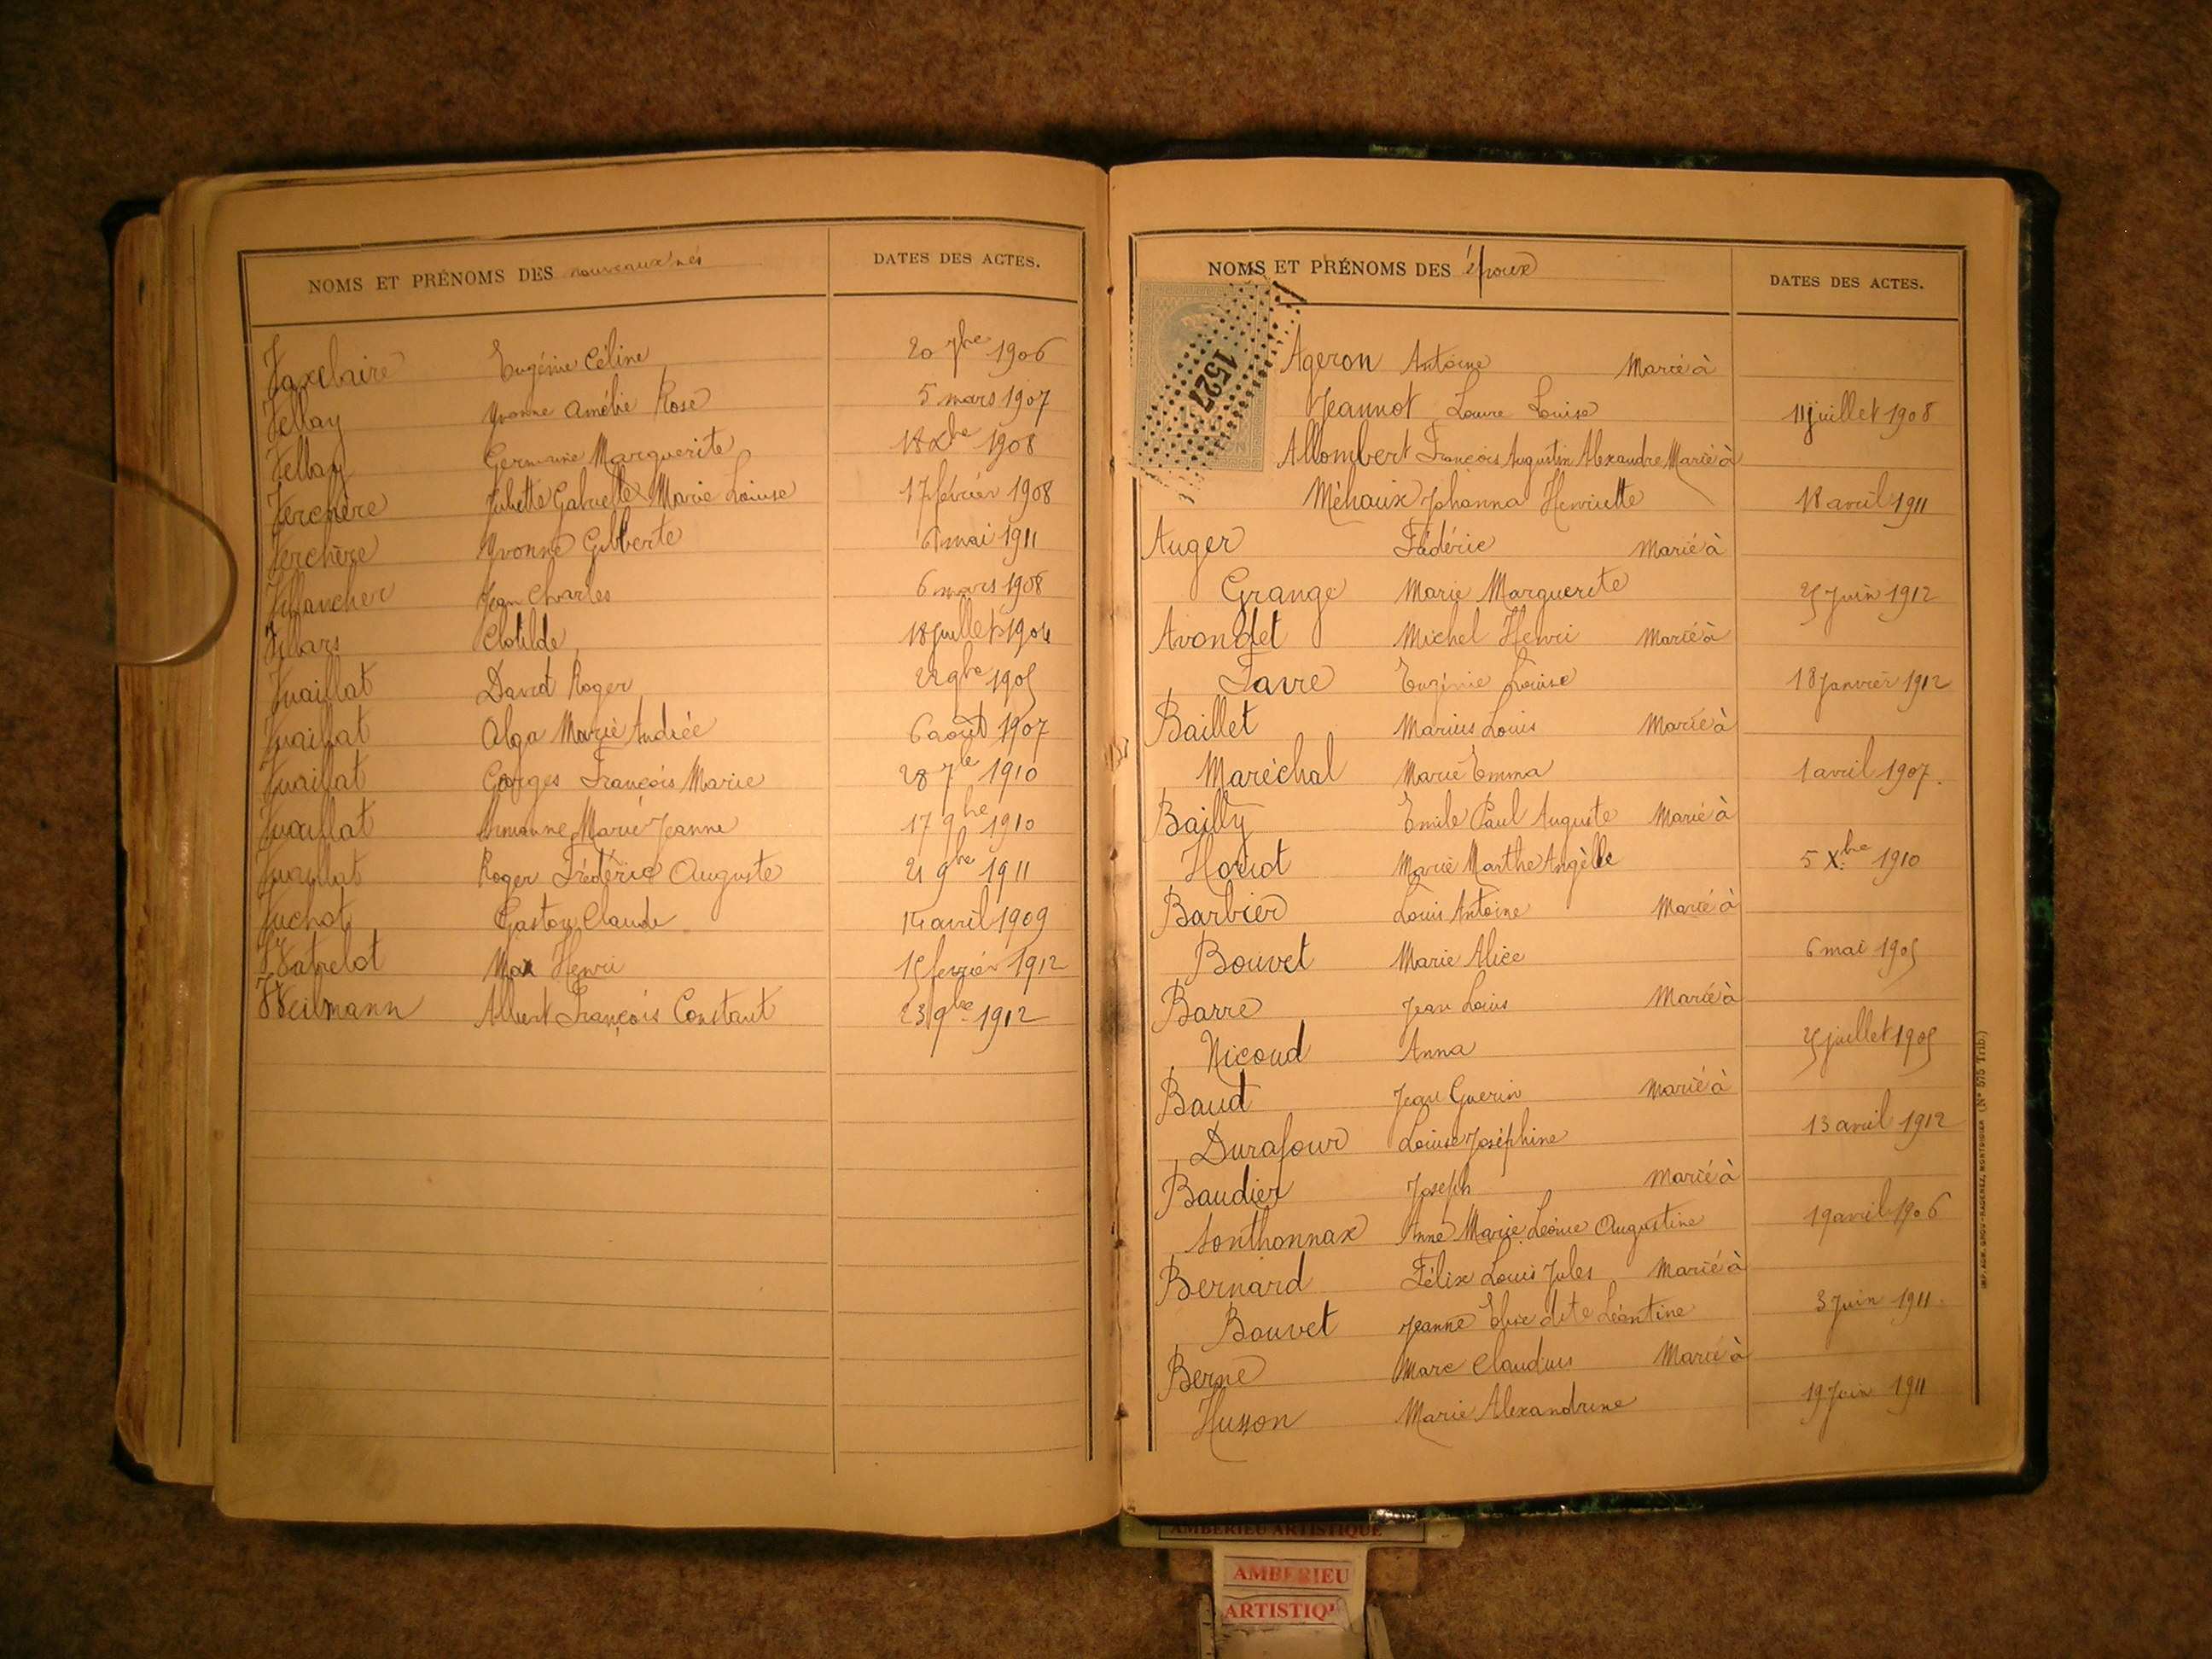 NOMS ET PRÉNOMS DES nouveaux nés DATES DES ACTES.
Vaxelaire Eugénie Céline 20 7bre 1906
Vellay Yvonne Amélie Rose 5 mars 1907
Vellay Germaine Marguerite 18 Xbre 1908
Verchère Juliette Gabrielle Marie Louise 17 février 1908
Verchère Yvonne Gilberte 6 mai 1911
Villancher Jean Charles 6 mars 1908
Villars Clotilde 18 juillet 1904
Vuaillat David Roger 22 9bre 1905
Vuaillat Olga Marie Andrée 6 août 1907
Vuaillat Georges François Marie 28 7bre 1910
Vuaillat Marie Jeanne 17 9bre 1910
Vuaillat Roger Frédéric Auguste 21 9bre 1911
Vuchot Gaston Claude 14 avril 1909
Watrelot Max Henri 15 février 1912
Weilmann Albert François Constant 23 9bre 1912
NOMS ET PRÉNOMS DES époux DATES DES ACTES.
1527
Ageron Antoine Marié à
Jeannot Laure Louise 11 juillet 1908
Allombert François Augustin Alexandre Marié à
Méhaux Johanna Henriette 18 avril 1911
Auger Fédéric Marié à
Grange Marie Marguerite 25 Juin 1912
Avondet Michel Henri Marié à
Favre Eugénie Louise 18 Janvier 1912
Baillet Marius Louis Marié à
Maréchal Marie Emma 1 avril 1907.
Bailly Emile Paul Auguste Marié à
Horiot Marie Marthe Angèle 5 Xbre 1910
Barbier Louis Antoine Marié à
Bouvet Marie Alice 6 mai 1905
Barre Jean Louis Marié à
Nicoud Anna 25 juillet 1905
Baud Jean Guerin Marié à
Durafour Louise Joséphine 13 avril 1912
Baudier Joseph Marié à
Sonthonnax Anne Marie Léonie Augustine 19 avril 1906
Bernard Félix Louis Jules Marié à
Bouvet Jeanne Elise dite Léontine 3 Juin 1911.
Berne Marc Claudius Marié à
Husson Marie Alexandrine 19 Juin 1911
(N° 575 Trib.)
AMBERIEU ARTISTIQUE
AMBERIEU
ARTISTIQU